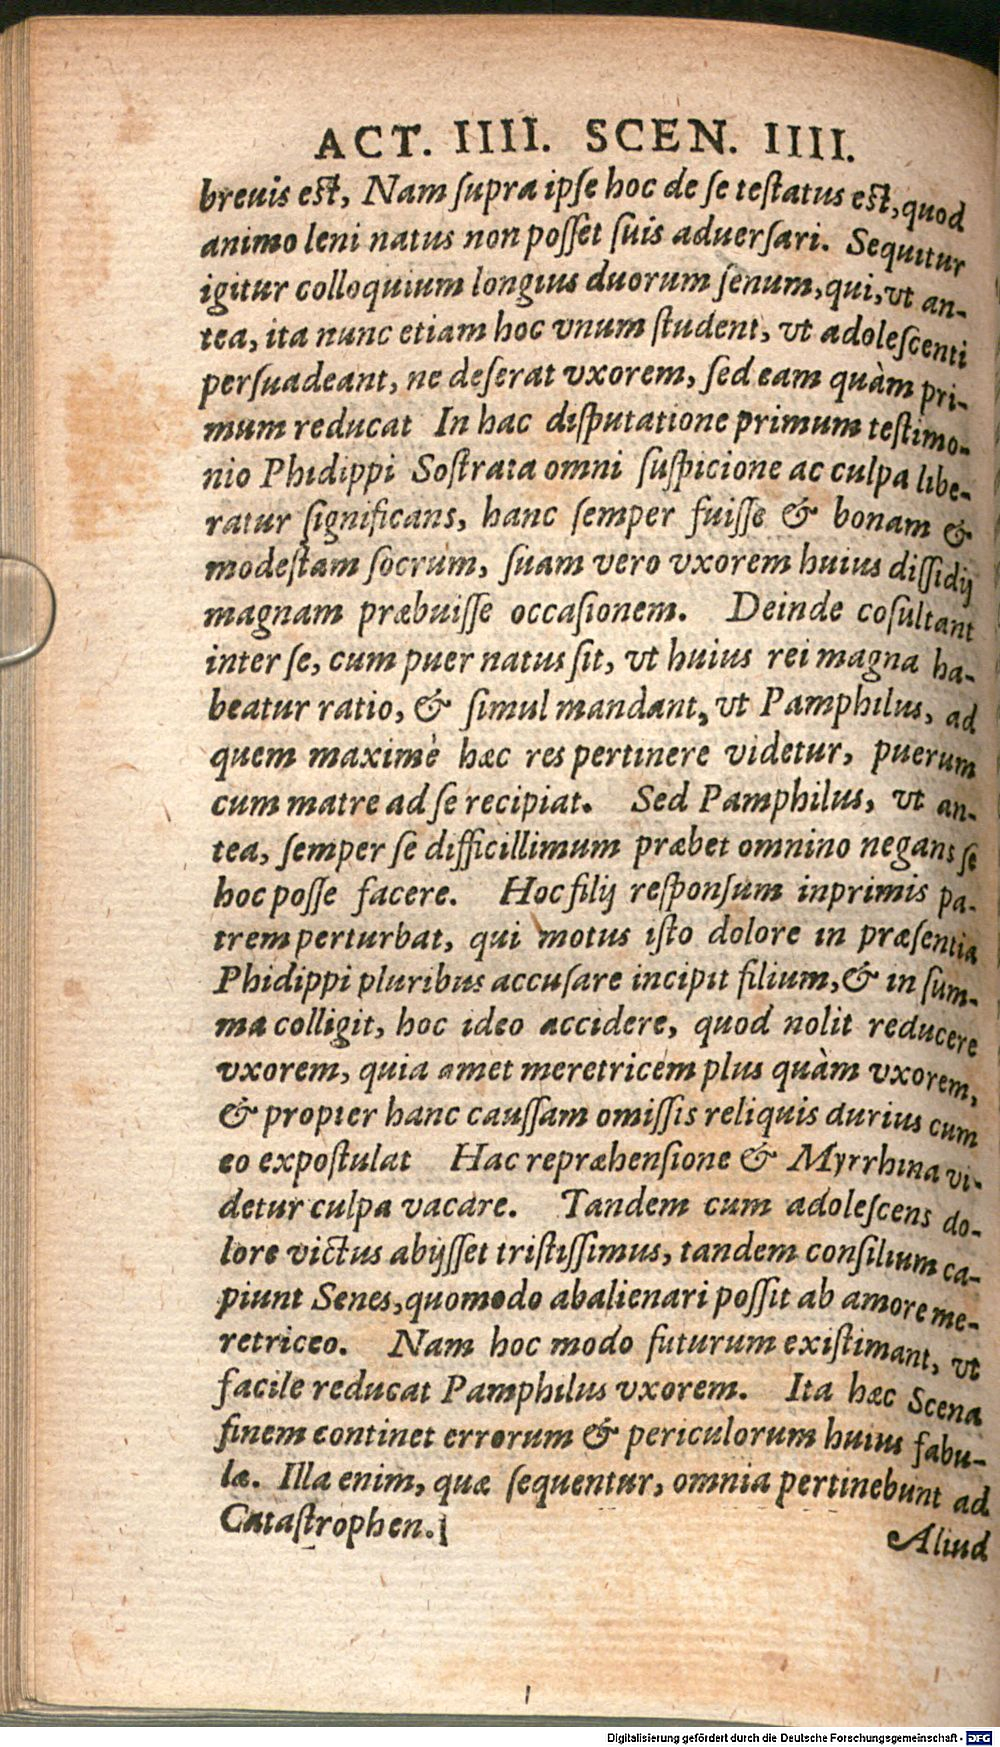 ACT. IIII. SCEN. IIII.
breuis est, Nam ſupra ipſe hoc de ſe teſtatus est, quod
animo leni natus non poſſet ſuis aduerſari. Sequitur
igitur colloquium longius duorum ſenum, qui, vt an-
tea, ita nunc etiam hoc vnum ſtudent, vt adoleſcenti
perſuadeant, ne deſerat vxorem, ſed eam quàm pri-
mum reducat In hac diſputatione primum teſtimo-
nio Phidippi Soſtrata omni ſuſpicione ac culpa libe-
ratur ſignificans, hanc ſemper fuiſſe & bonam &
modeſtam ſocrum, ſuam vero vxorem huius diſſidij
magnam præbuiſſe occaſionem. Deinde coſultant
inter ſe, cum puer natus ſit, vt huius rei magna ha-
beatur ratio, & ſimul mandant, vt Pamphilus, ad
quem maximè hæc res pertinere videtur, puerum
cum matre ad ſe recipiat. Sed Pamphilus, vt an-
tea, ſemper ſe difficillimum præbet omnino negans ſe
hoc poſſe facere. Hoc filij reſponſum inprimis pa-
trem perturbat, qui motus iſto dolore in præſentia
Phidippi pluribus accuſare incipit filium, & in ſum-
ma colligit, hoc ideo accidere, quod nolit reducere
vxorem, quia amet meretricem plus quàm vxorem,
& propter hanc cauſſam omiſſis reliquis durius cum
eo expoſtulat Hac repræhenſione & Myrrhina vi-
detur culpa vacare. Tandem cum adoleſcens do-
lore victus abijſſet triſtiſſimus, tandem conſilium ca-
piunt Senes, quomodo abalienari poſſit ab amore me-
retriceo. Nam hoc modo futurum exiſtimant, vt
facile reducat Pamphilus vxorem. Ita hæc Scena
finem continet errorum & periculorum huius fabu-
læ. Illa enim, quæ ſequentur, omnia pertinebunt ad
Cataſtrophen.
Aliud
Digitalisierung gefördert durch die Deutsche Forschungsgemeinschaft - DFG